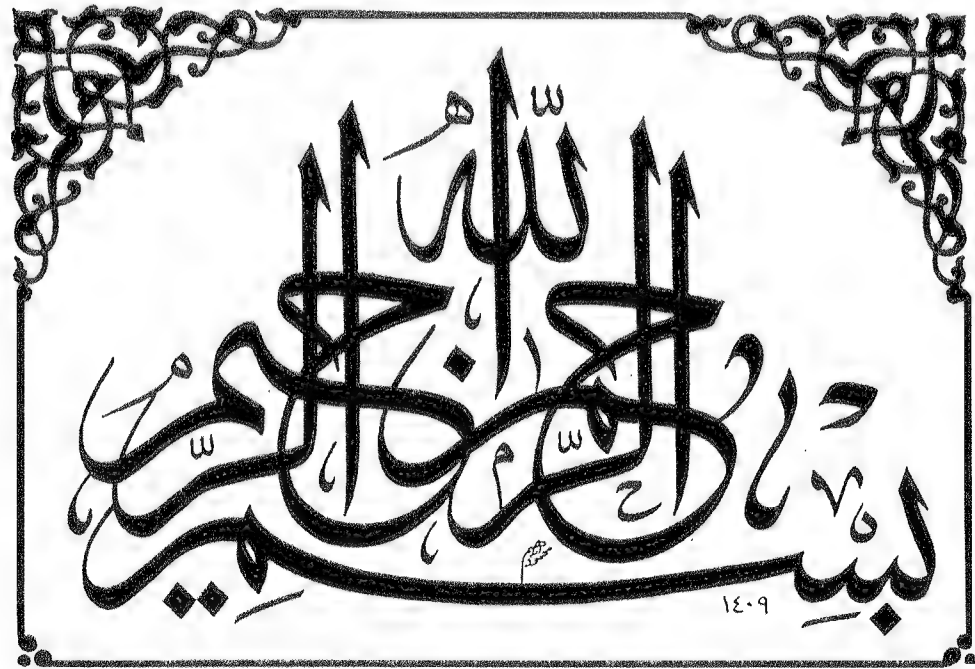 بِسْمِ اللّٰهِ الرَّحْمٰنِ الرَّحِيمِ
١٤٠٩